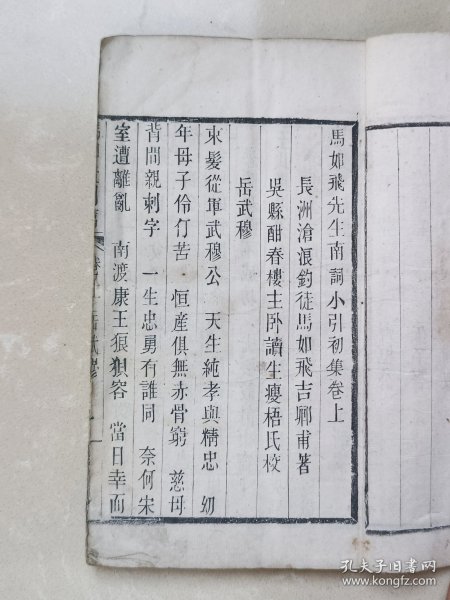 馬如飛先生南詞小引初集卷上
長洲滄浪釣徒馬如飛吉卿甫著
吳縣酣春樓主臥讀生瘦梧氏校
岳武穆
束髮從軍武穆公 天生純孝與精忠 幼
年母子伶仃苦 恒產俱無赤骨窮 慈母
背間親刺字 一生忠勇有誰同 奈何宋
室遭離亂 南渡康王狼狽容 當日幸而
卷上 岳武穆 一
孔夫子旧书网
www.kongfz.com